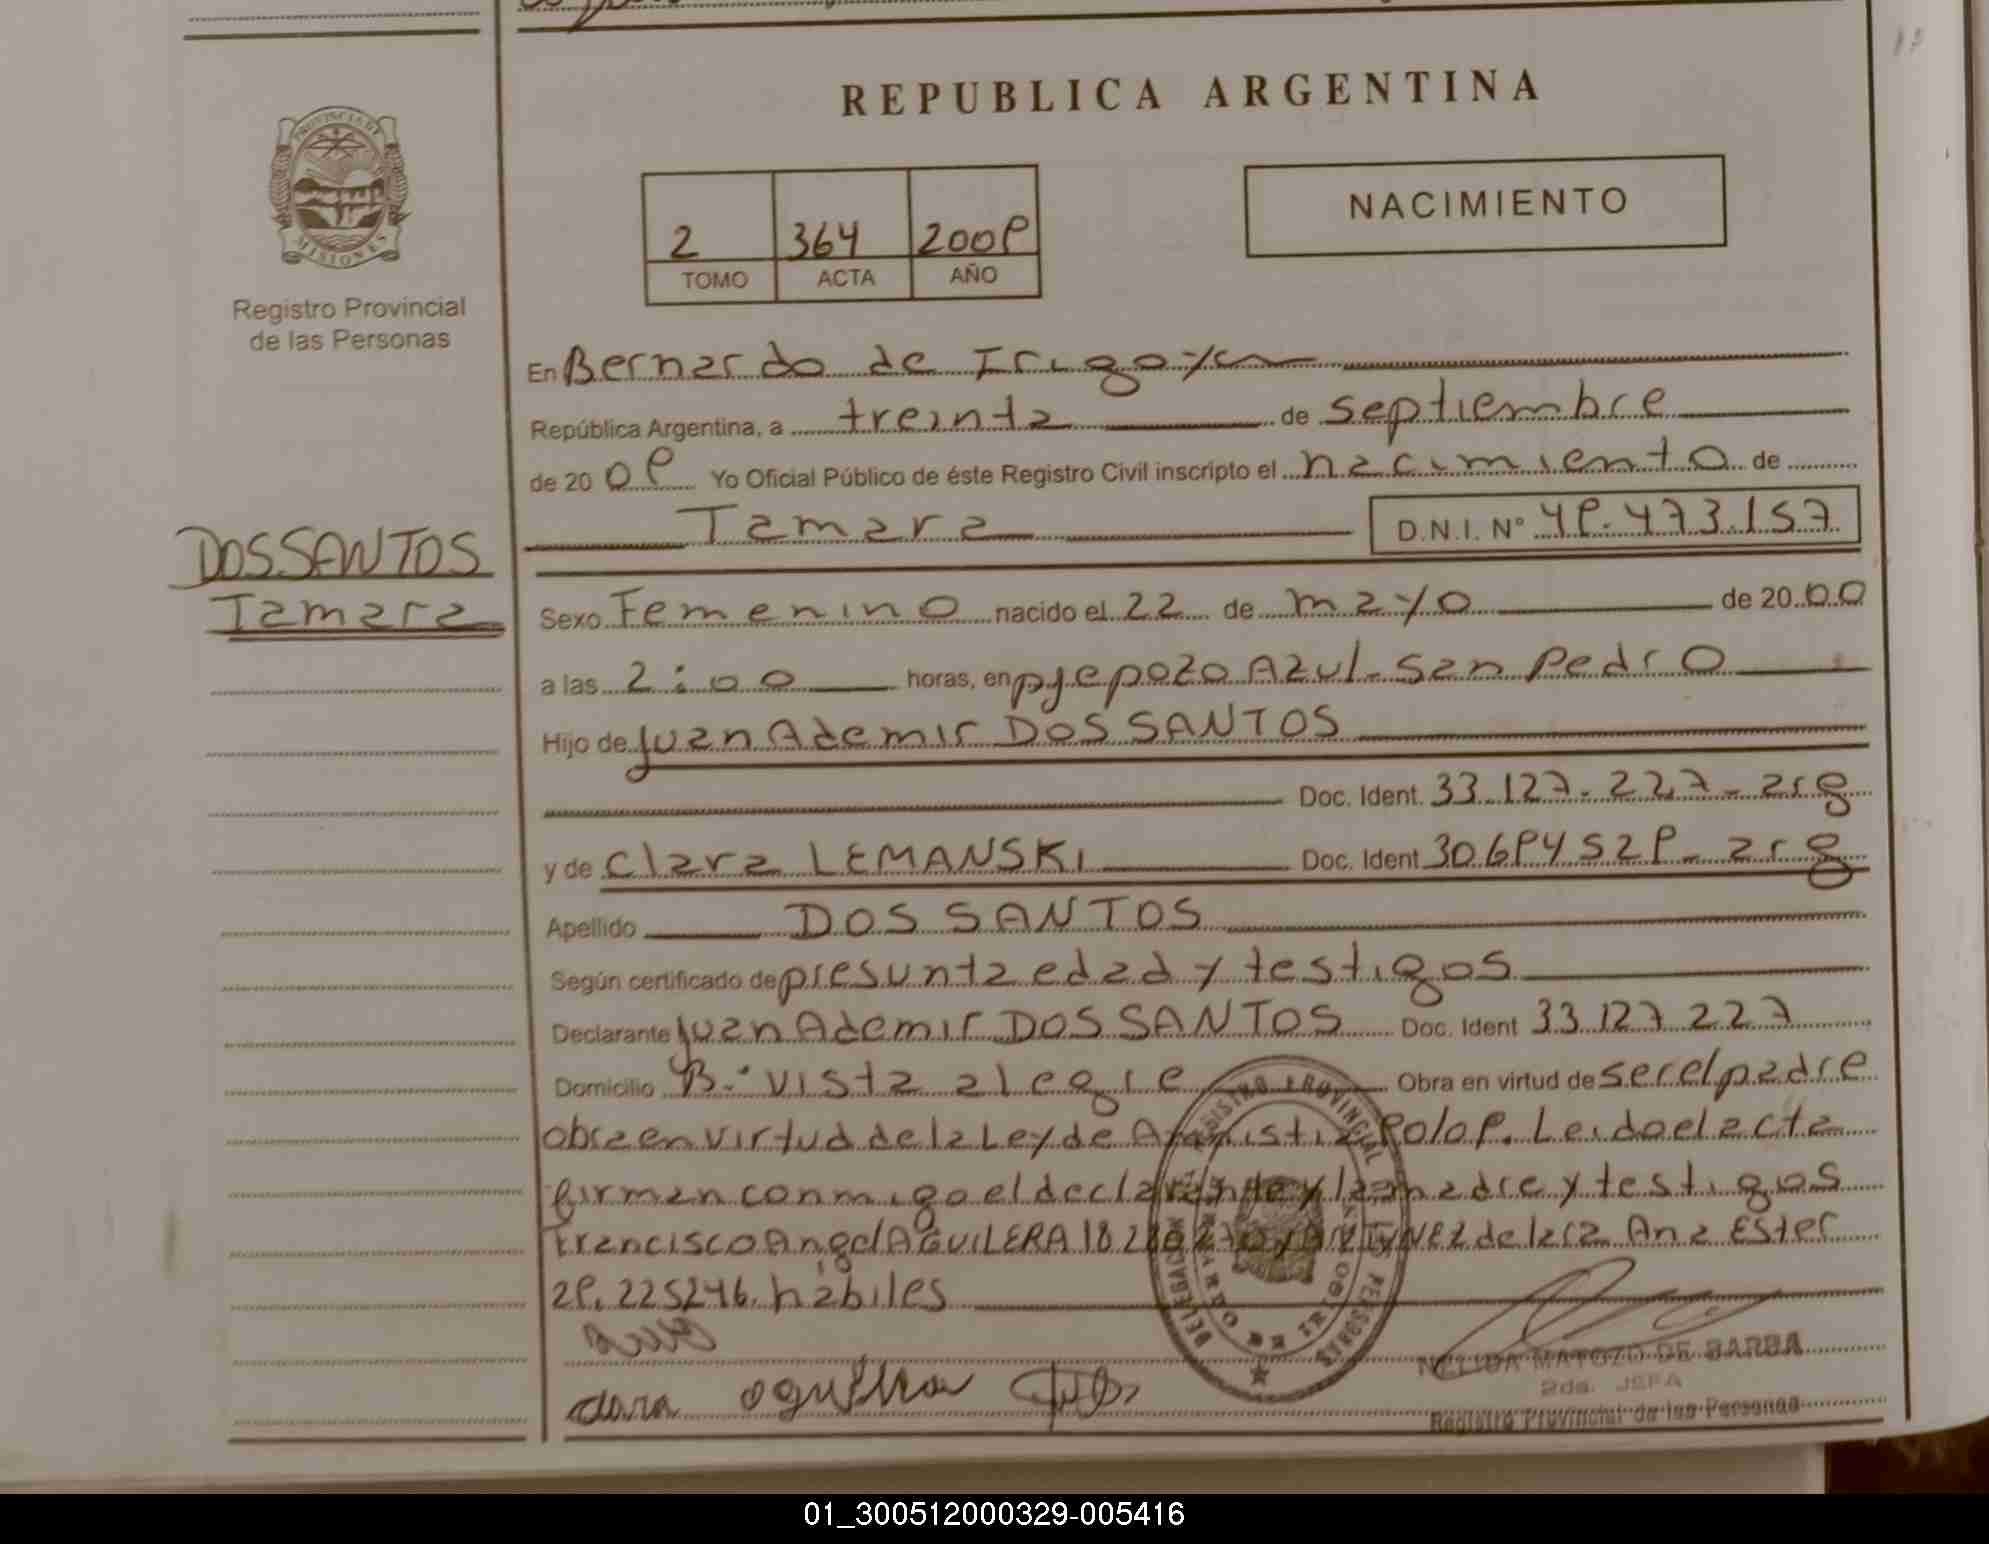 REPUBLICA ARGENTINA
PROVINCIA DE MISIONES
Registro Provincial
de las Personas
2 364 2009
TOMO ACTA AÑO
NACIMIENTO
En Bernardo de Irigoyen
República Argentina, a treinta de septiembre
de 2009 Yo Oficial Público de éste Registro Civil inscripto el nacimiento de
Tamara D.N.I. Nº 49.473.157
DOS SANTOS
Tamara
Sexo Femenino nacido el 22 de mayo de 2000
a las 2:00 horas, en pje pozo Azul-San Pedro
Hijo de Juan Ademir DOS SANTOS
Doc. Ident. 33.127.227-arg
y de Clara LEMANSKI Doc. Ident 30694529-arg
Apellido DOS SANTOS
Según certificado de presunta edad y testigos
Declarante Juan Ademir DOS SANTOS Doc. Ident 33.127.227
Domicilio B.º vista alegre Obra en virtud de ser el padre
obra en virtud de la Ley de Amnistia 90/09. Leido el acta
firman conmigo el declarante y la madre y testigos
Francisco Angel AGUILERA de lara Ana Ester
29.225246. hábiles
clara aguilera
NELIDA MATOZO DE BARBA
2da. JEFA
Registro Provincial de las Personas
REGISTRO PROVINCIAL DE LAS PERSONAS
DELEGACION
BERNARDO DE IRIGOYEN
01_300512000329-005416